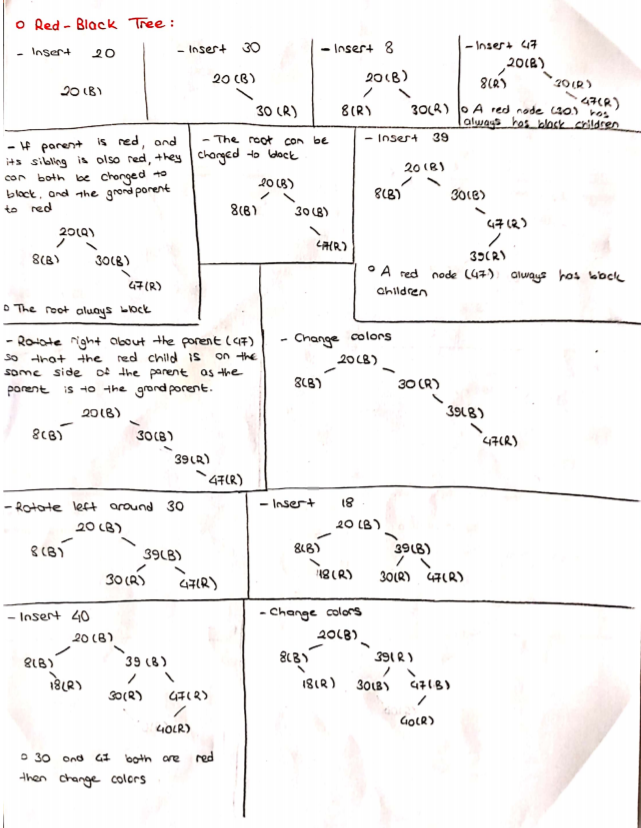 o Red-Black Tree:
- Insert 20
20(B)
- Insert 30
20(B)
30(R)
- Insert 8
20(B)
8(R) 30(R)
- Insert 47
20(B)
8(R) 30(R)
47(R)
o A red node (30) has
always has black children
- If parent is red, and
its sibling is also red, they
can both be changed to
black, and the grandparent
to red
20(R)
8(B) 30(B)
47(R)
o The root always black
- The root can be
changed to black
20(B)
8(B) 30(B)
47(R)
- Insert 39
20(B)
8(B) 30(B)
47(R)
39(R)
o A red node (47) always has black
children
- Rotate right about the parent (47)
so that the red child is on the
same side of the parent as the
parent is to the grandparent.
20(B)
8(B) 30(B)
39(R)
47(R)
- Change colors
20(B)
8(B) 30(R)
39(B)
47(R)
- Rotate left around 30
20(B)
8(B) 39(B)
30(R) 47(R)
- Insert 18
20(B)
8(B) 39(B)
18(R) 30(R) 47(R)
- Insert 40
20(B)
8(B) 39(B)
18(R) 30(R) 47(R)
40(R)
o 30 and 47 both are red
then change colors
- Change colors
20(B)
8(B) 39(R)
18(R) 30(B) 47(B)
40(R)